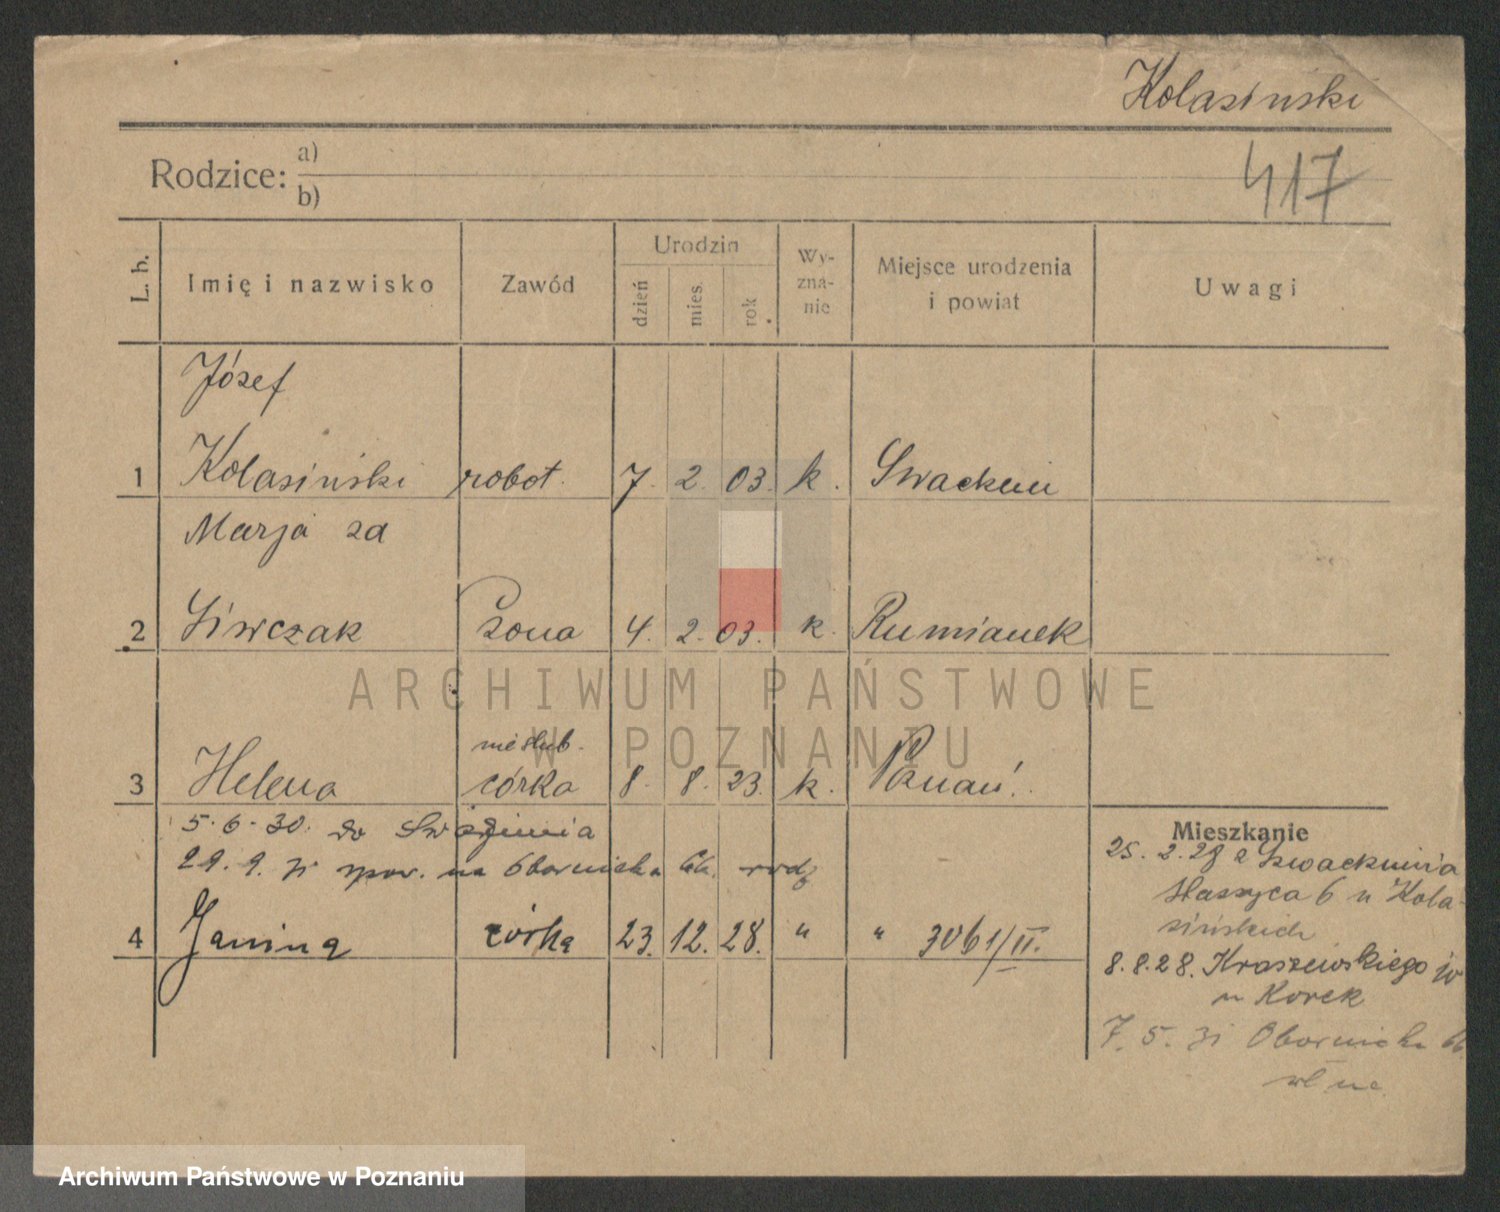 Kolasinski
417
Rodzice: a)
b)
L. b. Imię i nazwisko Zawód Urodzin dzień mies. rok Wy-zna-nie Miejsce urodzenia i powiat Uwagi
Józef
1 Kolasiński robot. 7. 2. 03. k.
Marja za
2 Siwczak żona 4. 2. 03. k. Rumianek
ARCHIWUM PAŃSTWOWE
W POZNANIU
nieślub.
3 Helena córka 8. 8. 23. k. Poznań.
5.6.30. do
29.9. na Obornicka
4 Janina córka 23. 12. 28. " " 3061/II.
Mieszkanie
25. 2. 28 z
Staszyca 6 u Kola-
sińskich
8.8.28. Kraszewskiego
u Korek
7. 5. 31 Obornicka 66
Archiwum Państwowe w Poznaniu